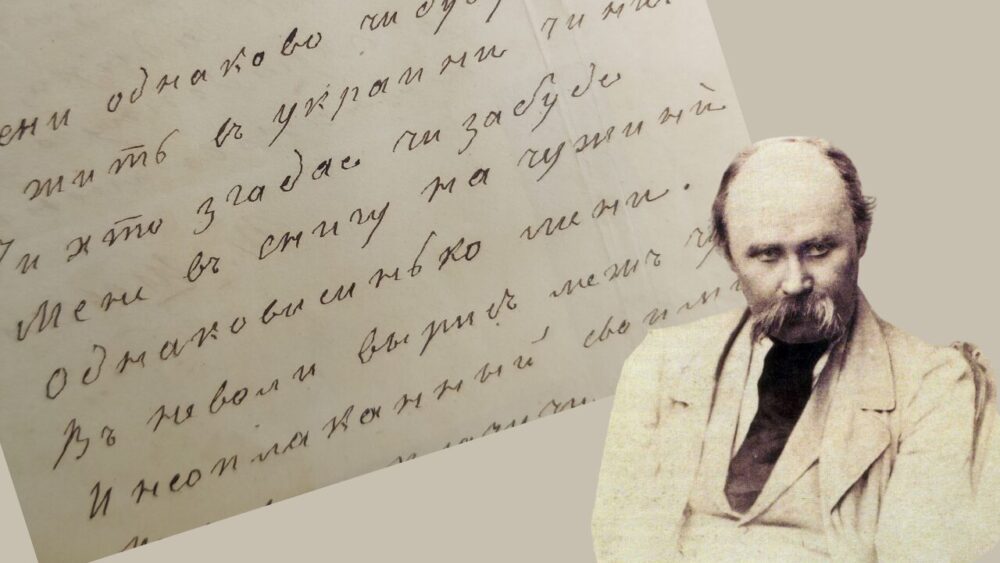 ени однаково чи буду
жить въ украини чи ни.
Чи хто згадае чи забуде
Мене въ снигу на чужиний
Однаковисинько мени.
Въ неволи вырисъ межъ
И неоплаканный своими